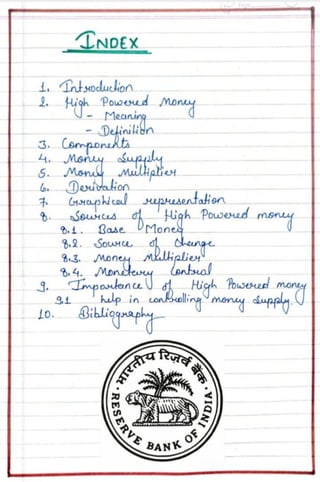 INDEX
1. Introduction
2. High Powered Money
- Meaning
- Definition
3. Components
4. Money Supply
5. Money Multiplier
6. Derivation
7. Graphical representation
8. Sources of High Powered money
8.1. Base Money
8.2. Source of Change
8.3. Money Multiplier
8.4. Monetary Control
9. Importance of High Powered money
9.1 help in controlling money supply.
10. Bibliography
भारतीय रिज़र्व बैंक
RESERVE BANK OF INDIA